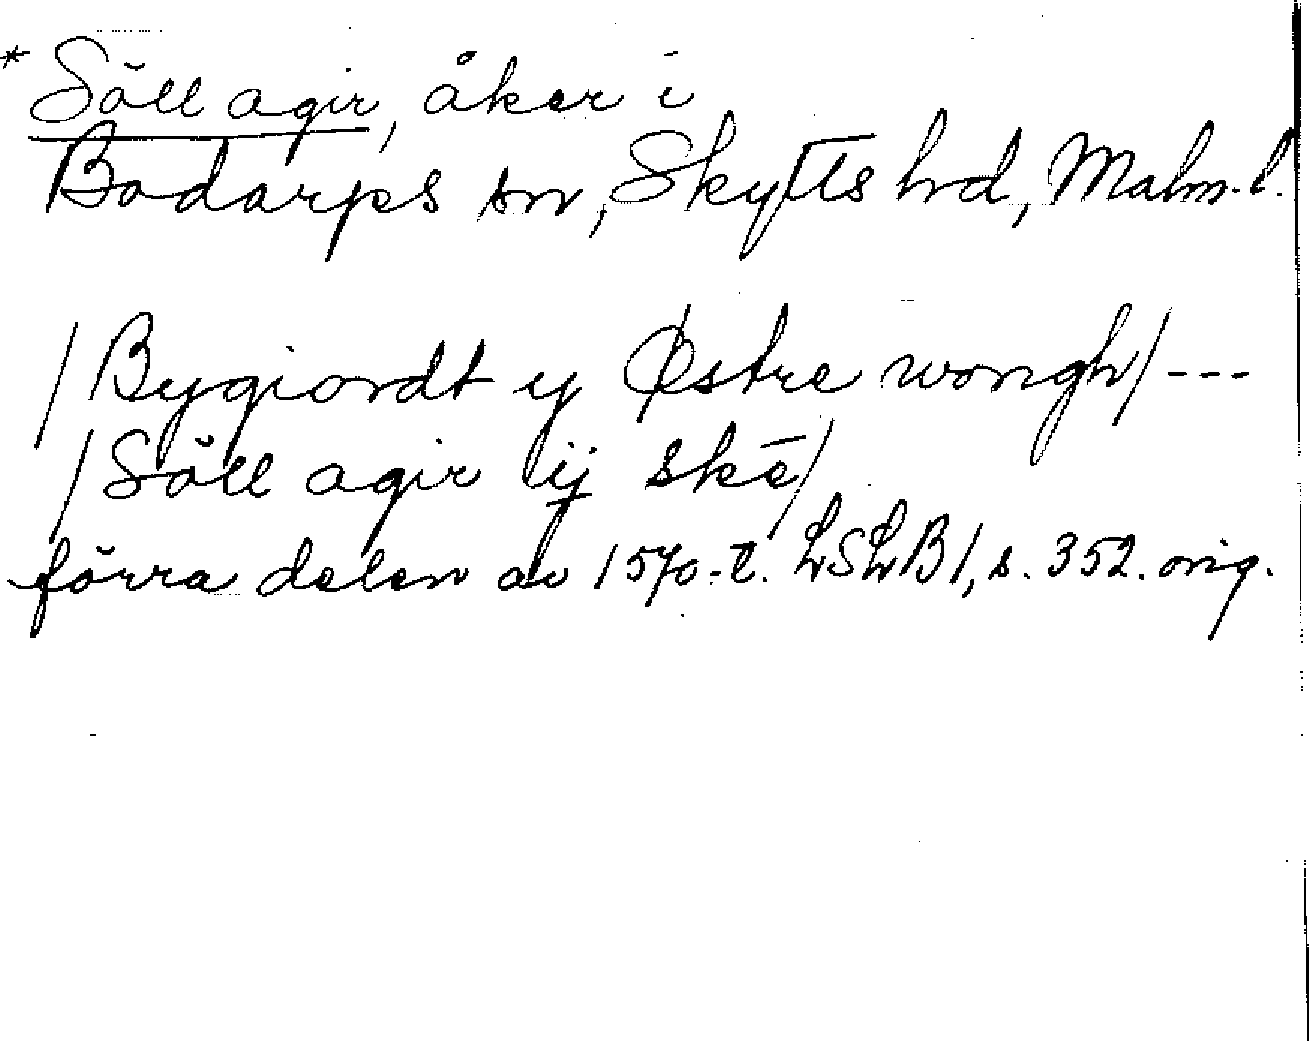 * Söll agir, åker i
Bodarps sn, Skytts hd, Malm. l.
/Bygiordt y Østre wongh/ ---
/Söll agir iij skē/
förra delen av 1570-t. LSLB1, s. 352. orig.